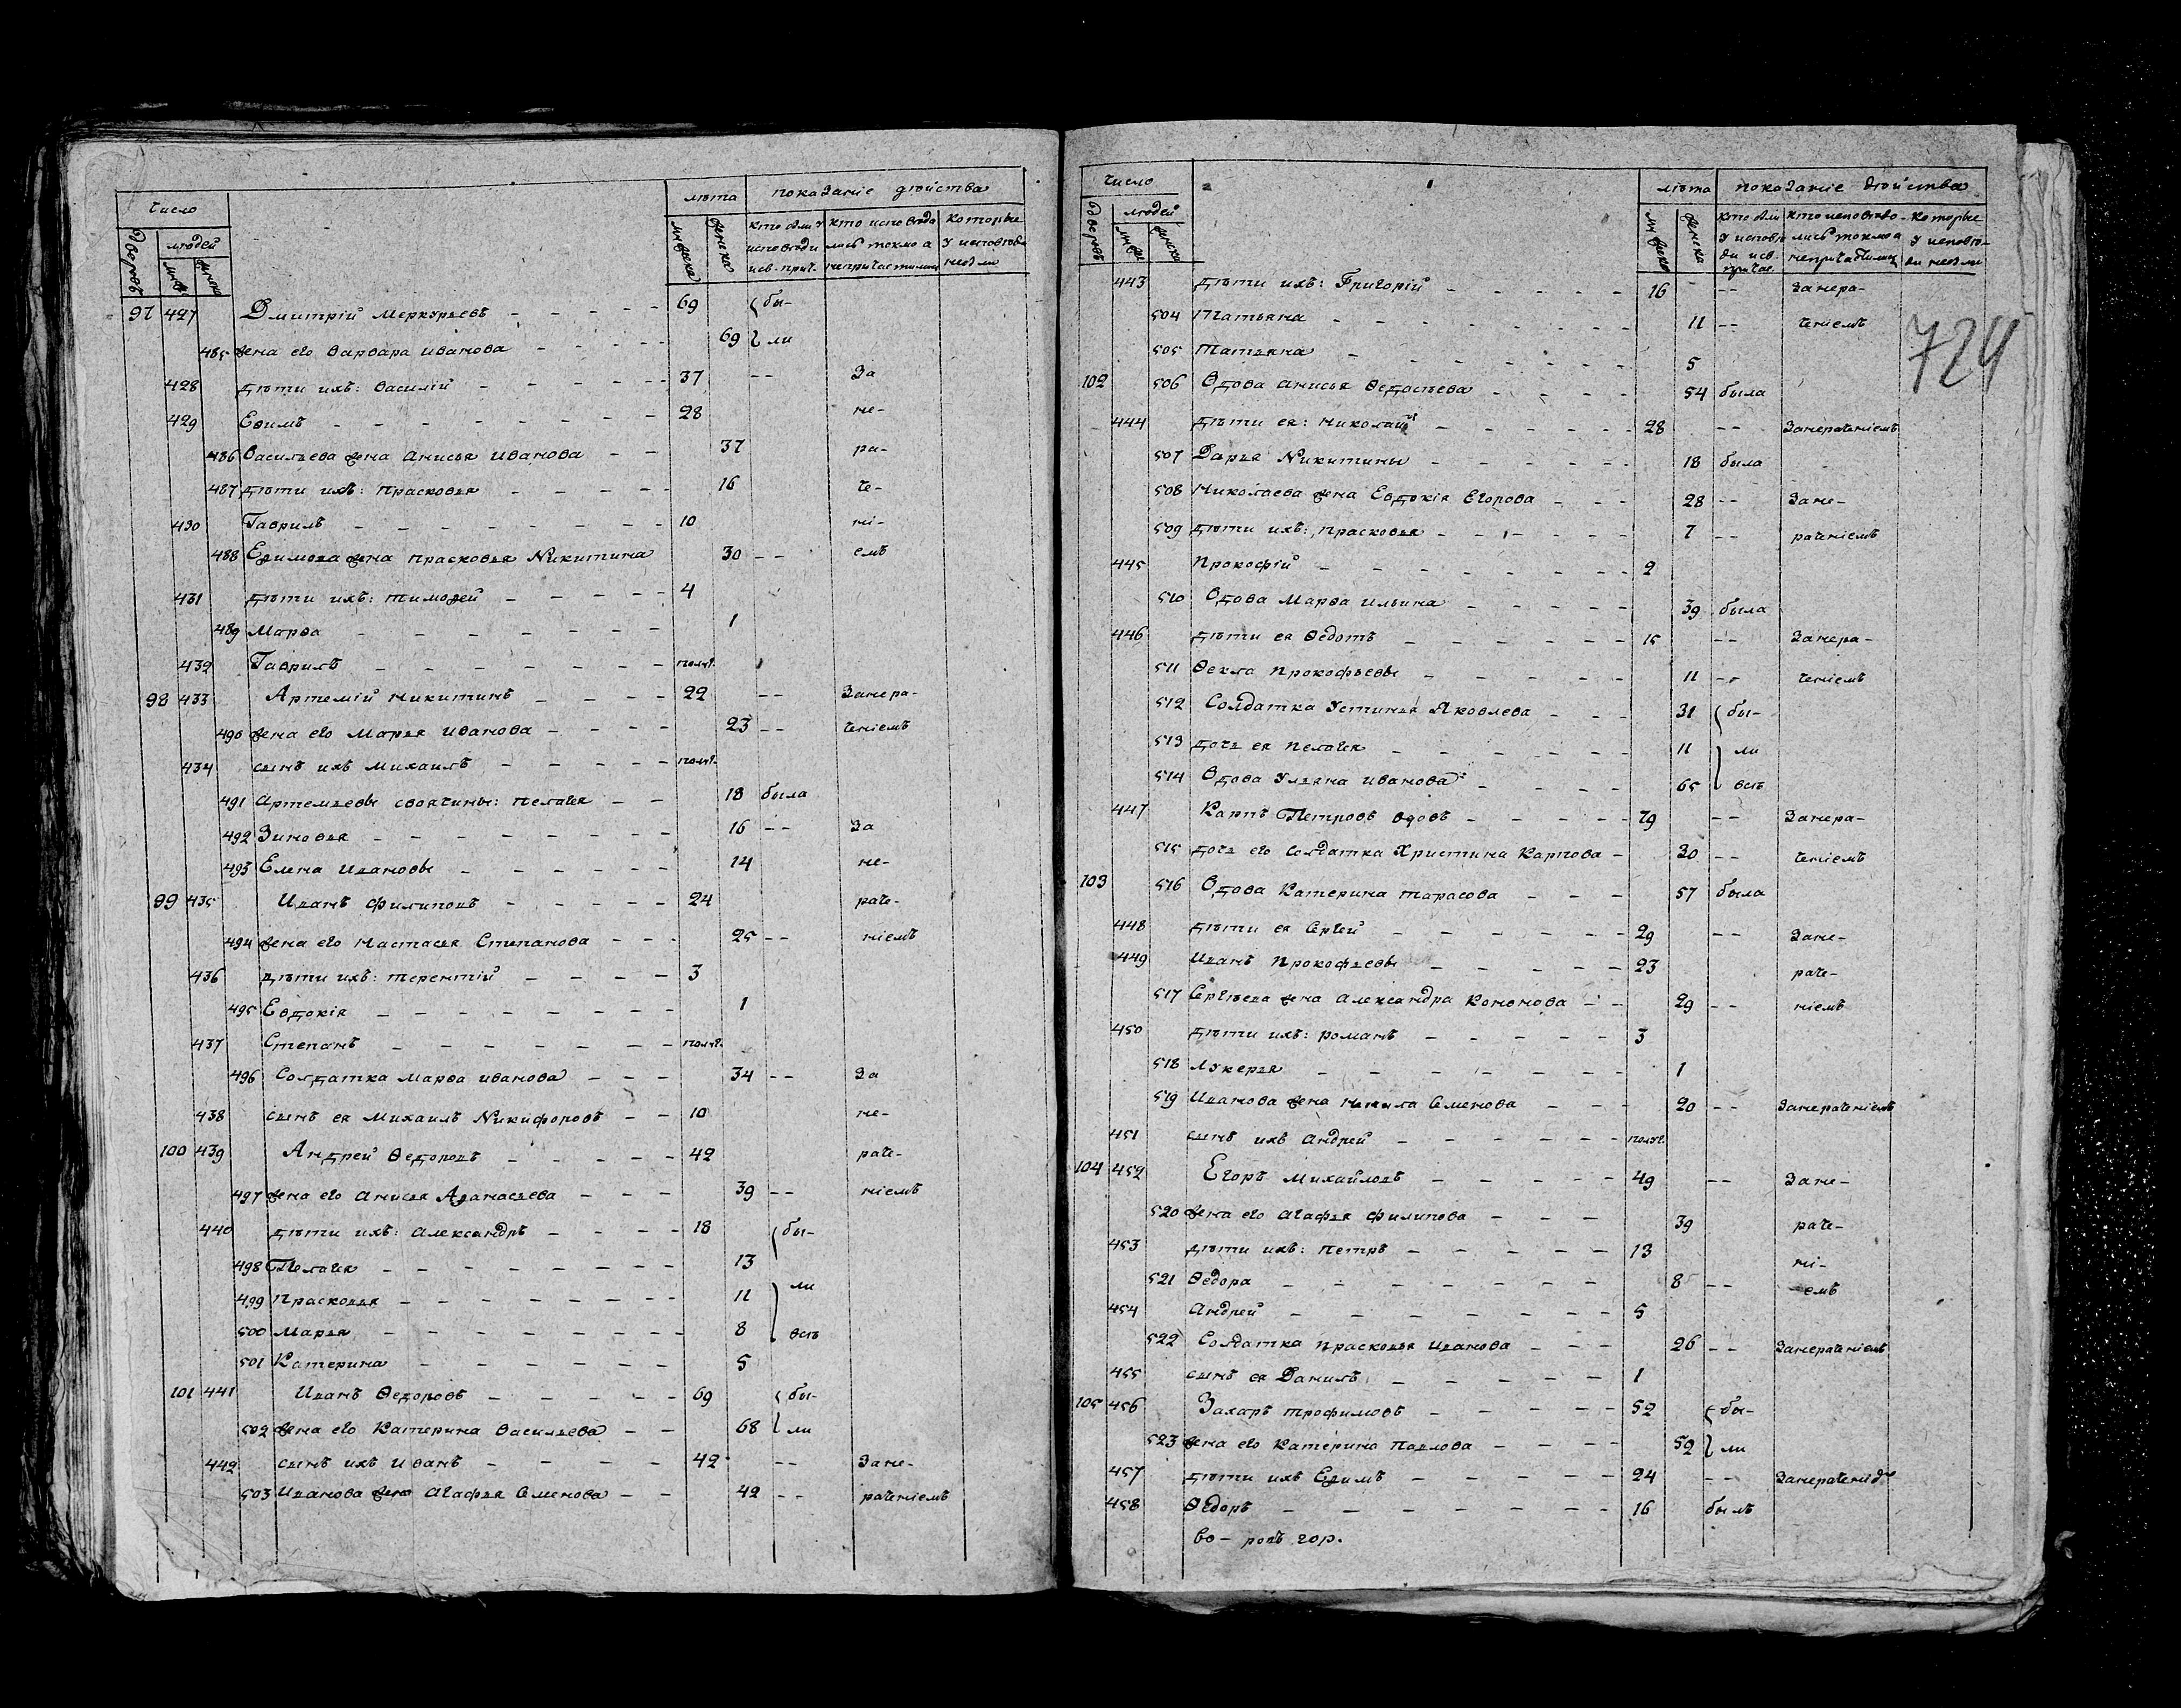 число лѣта показаніе дѣйства
дворовъ людей мужска женска кто были у исповѣди и св. прич. кто исповѣдались токмо а непричастились которые у исповѣди небыли
97 427 Дмитрій Меркурьевъ 69 бы-
485 жена его Варвара Иванова 69 ли
428 дѣти ихъ: Василій 37 -- За
429 Евимъ 28 не-
486 Васильева жена Анисья Иванова 37 ра-
487 дѣти ихъ: Прасковья 16 че-
430 Гаврилъ 10 ні-
488 Еѳимова жена Прасковья Никитина 30 -- емъ
431 дѣти ихъ: Тимоѳей 4
489 Марѳа 1
432 Гаврилъ полуг.
98 433 Артемій Никитинъ 22 -- Занера-
490 жена его Марья Иванова 23 -- ченіемъ
434 сынъ ихъ Михаилъ полуг.
491 Артемьевы своячины: Пелагея 18 была
492 Зиновья 16 -- За
493 Елена Ивановы 14 не-
99 435 Иванъ Филиповъ 24 раче-
494 жена его Настасья Степанова 25 -- ніемъ
436 дѣти ихъ: Терентій 3
495 Евдокія 1
437 Степанъ полуг.
496 Солдатка Марѳа Иванова 34 -- За
438 сынъ ея Михаилъ Никифоровъ 10 не-
100 439 Андрей Ѳедоровъ 42 раче-
497 жена его Анисья Аѳанасьева 39 -- ніемъ
440 дѣти ихъ: Александръ 18 бы-
498 Пелагея 13
ли
499 Прасковья 11
500 Марья 8 всѣ
501 Катерина 5
101 441 Иванъ Ѳедоровъ 69 бы-
502 жена его Катерина Васильева 68 ли
442 сынъ ихъ Иванъ 42 -- Зане-
503 Иванова жена Агафья Семенова 42 -- раченіемъ
число лѣта показаніе дѣйства
дворовъ людей мужска женска кто были у исповѣди и св. причас. кто исповѣдо-лись токмо а непричастились которые у исповѣ-ди небыли
724
443 дѣти ихъ: Григорій 16 -- Занера-
504 Татьяна 11 -- ченіемъ
505 Татьяна 5
102 506 Вдова Анисья Ѳедосѣева 54 была
444 дѣти ея: Николай 28 -- Занераченіемъ
507 Дарья Никитины 18 была
508 Николаева жена Евдокія Егорова 28 -- Зане-
509 дѣти ихъ: Прасковья 7 -- раченіемъ
445 Прокофій 2
510 Вдова Марѳа Ильина 39 была
446 дѣти ея Ѳедотъ 15 -- Занера-
511 Ѳекла Прокофьевы 11 -- ченіемъ
512 Солдатка Устинья Яковлева 31 бы-
513 дочь ея Пелагея 11 ли
514 Вдова Ульяна Иванова 65 всѣ
447 Карпъ Петровъ вдовъ 79 -- Занера-
515 дочь его солдатка Христина Карпова 30 -- ченіемъ
103 516 Вдова Катерина Тарасова 57 была
448 дѣти ея Сергей 29 -- Зане-
449 Иванъ Прокофьевы 23 раче-
517 Сергѣева жена Александра Кононова 29 -- ніемъ
450 дѣти ихъ: Романъ 3
518 Лукерья 1
519 Иванова жена Семенова 20 -- Занераченіемъ
451 сынъ ихъ Андрей полуг.
104 452 Егоръ Михайловъ 49 -- Зане-
520 жена его Агафья Филипова 39 раче-
453 дѣти ихъ: Петръ 13 ні-
521 Ѳедора 8 -- емъ
454 Андрей 5
522 Солдатка Прасковья Иванова 26 -- Занераченіемъ
455 сынъ ея Данилъ 1
105 456 Захаръ Трофимовъ 52 бы-
523 жена его Катерина Павлова 52 ли
457 дѣти ихъ Еѳимъ 24 --
458 Ѳедоръ 16 былъ